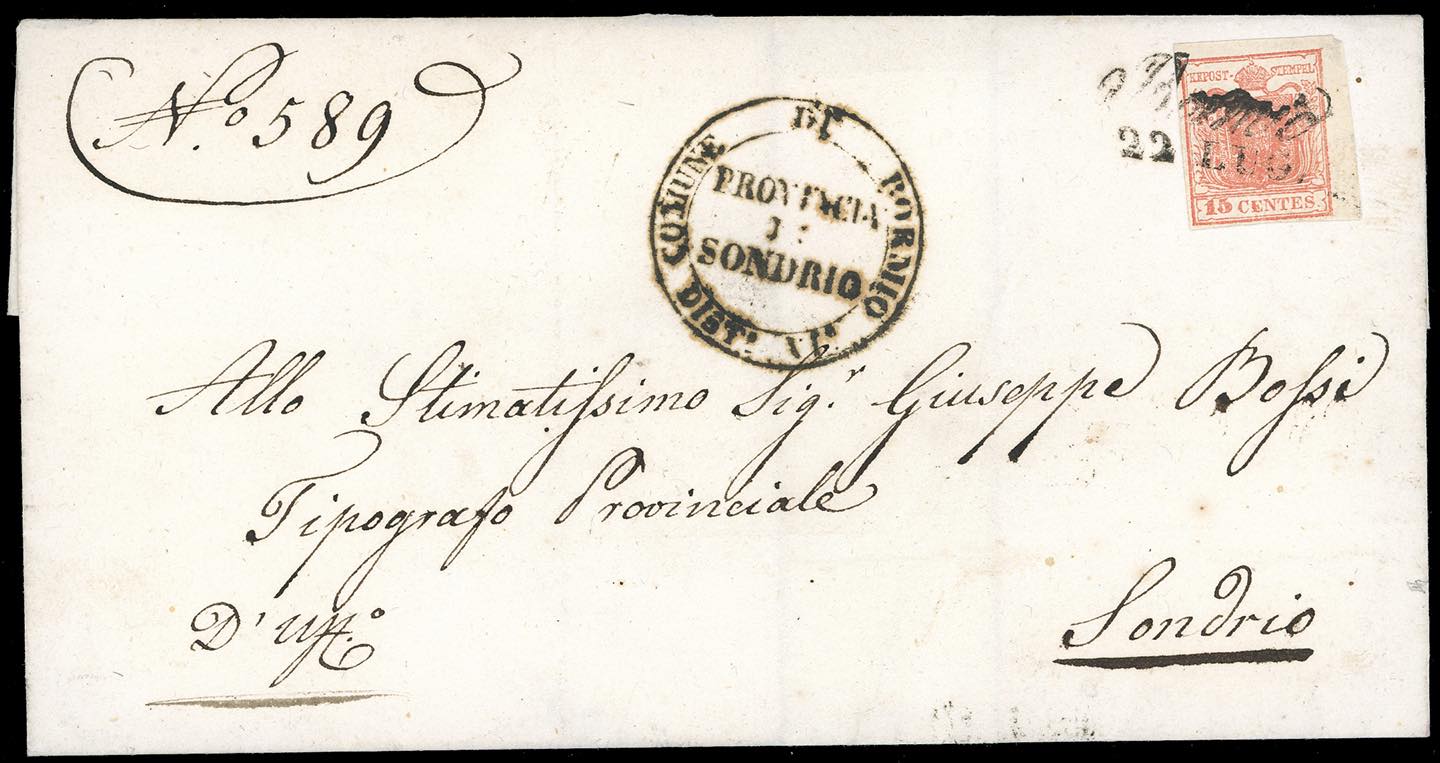 N.o 589
KKPOST-STEMPEL
15 CENTES.
Bormio
22 LUG.
COMUNE DI BORMIO
PROVINCIA
DI
SONDRIO
DIST.o VI.o
Allo Stimatissimo Sig.r Giuseppe Bossi
Tipografo Provinciale
D'uff.o
Sondrio